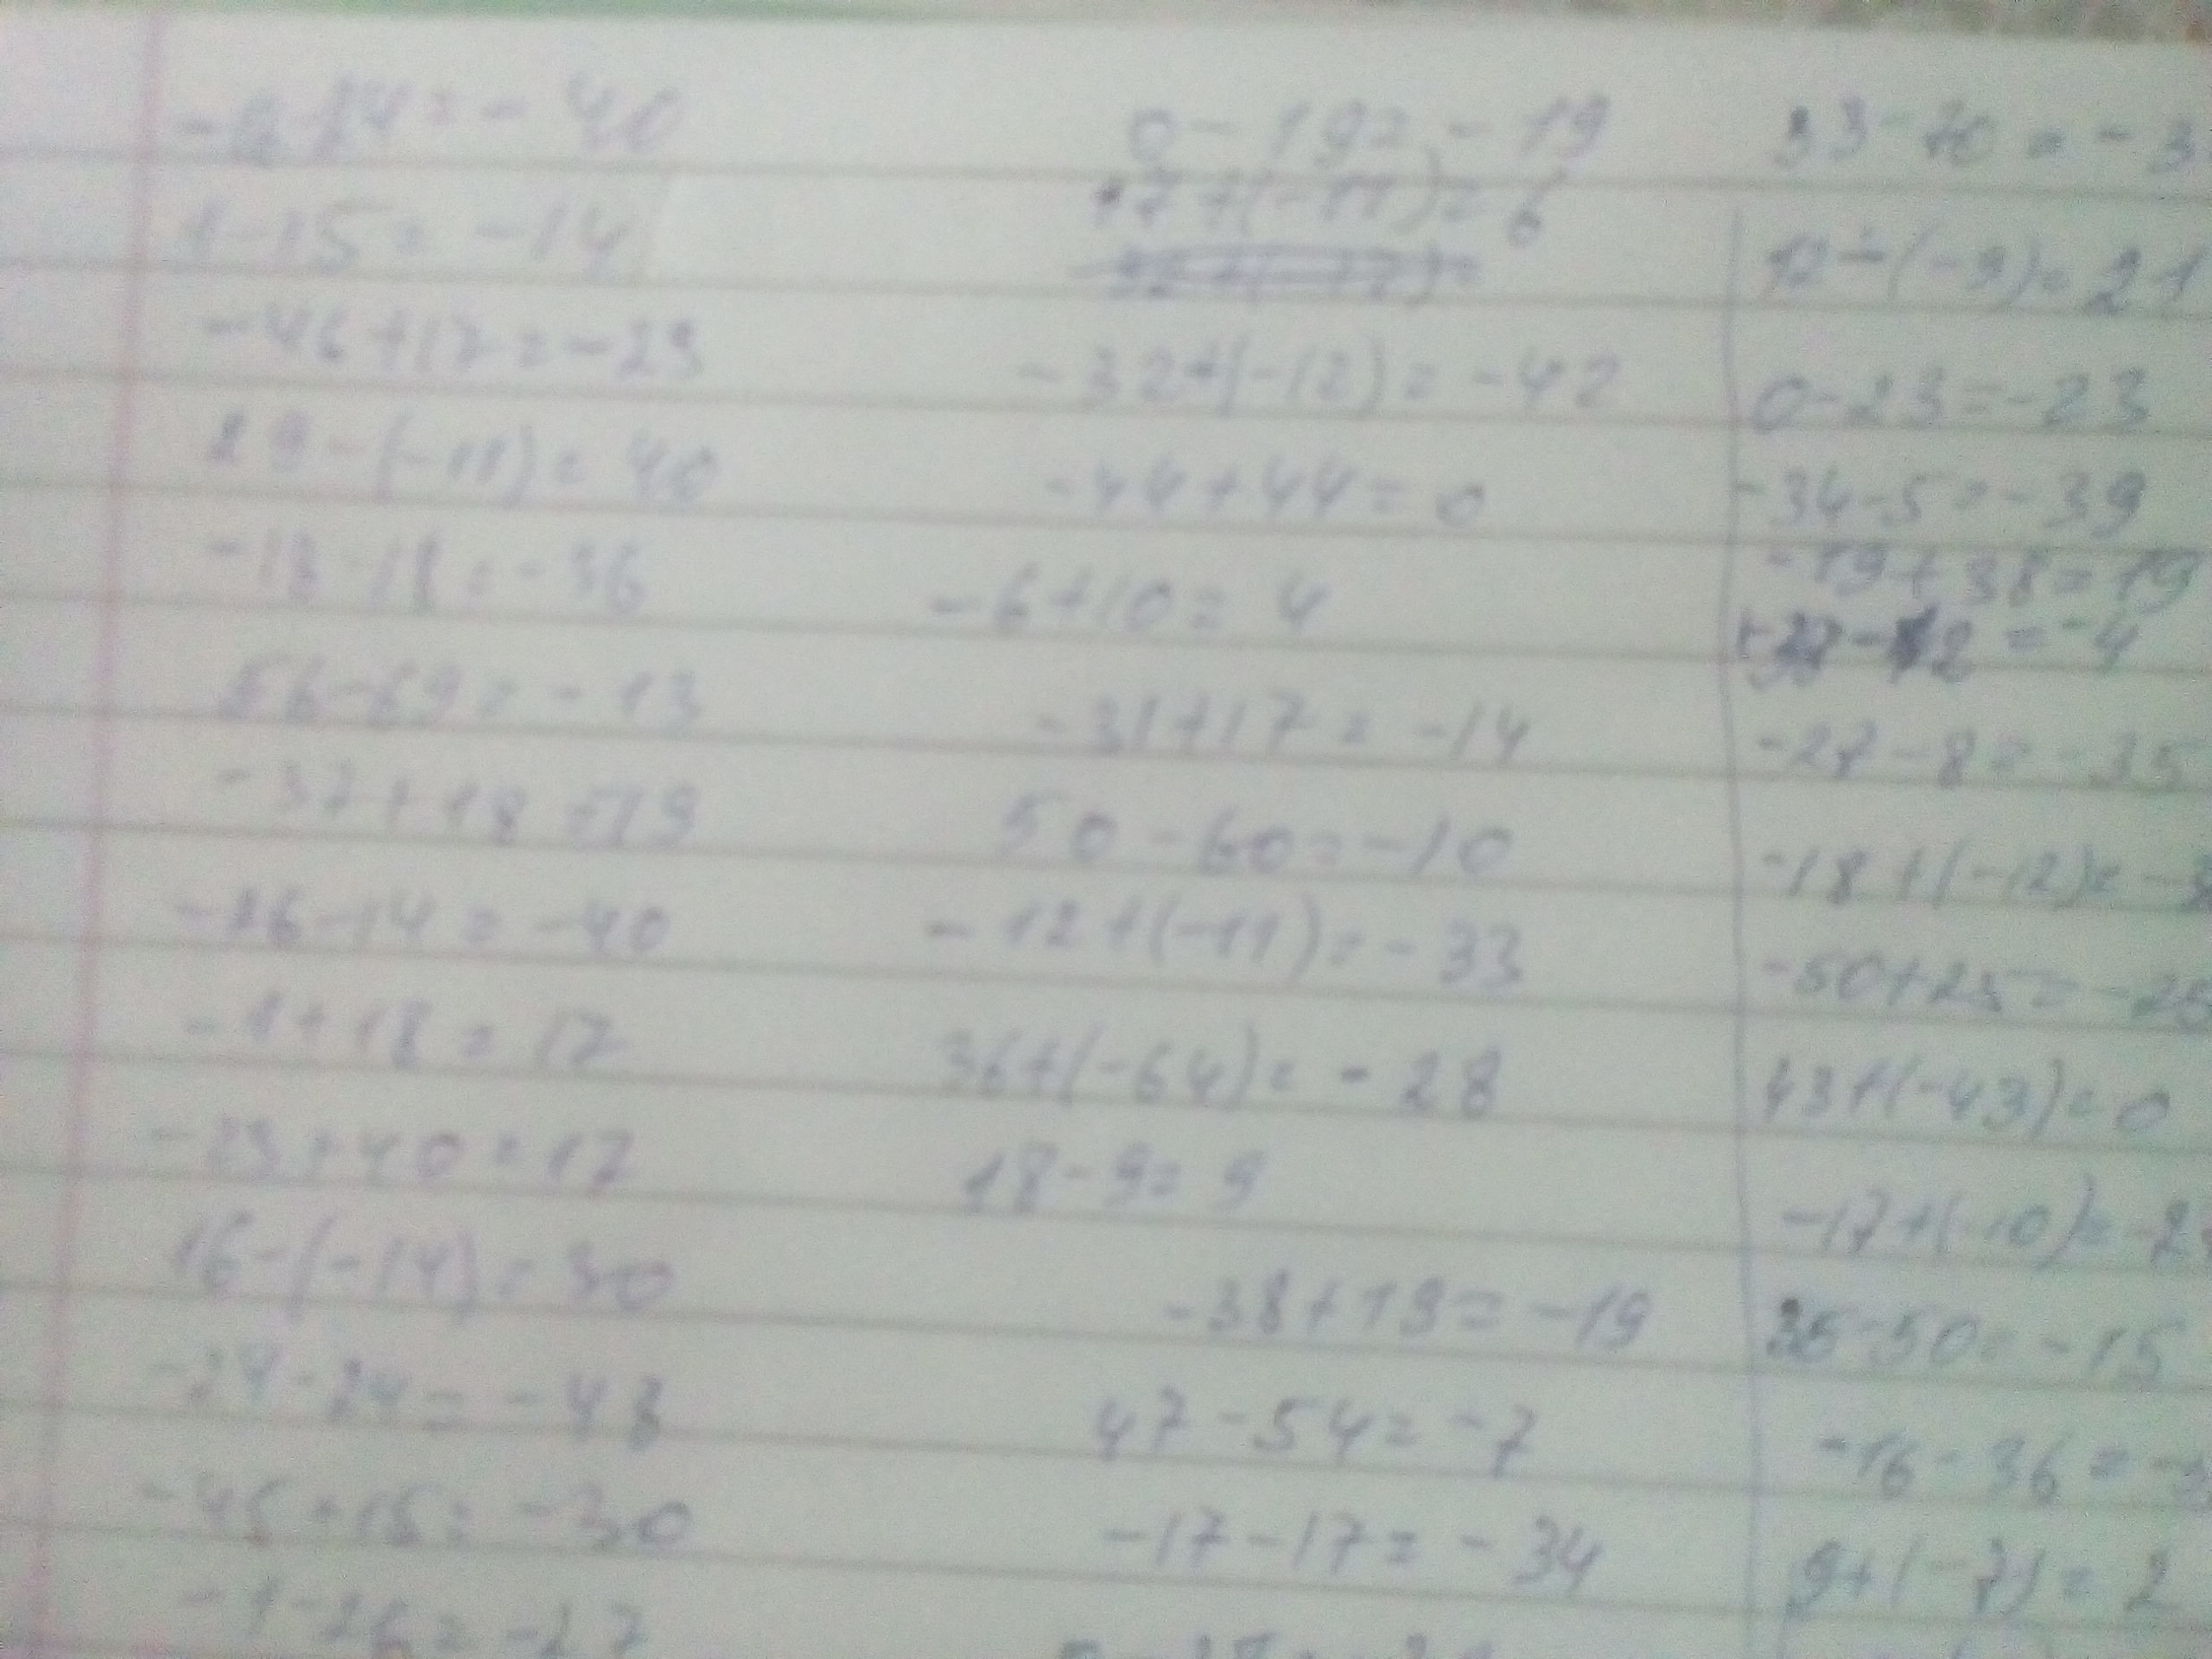 1-15=-14
-46+17=-29
29-(-11)=40
-18-18=-36
56-69=-13
-37+18=-19
-26-14=-40
-1+18=17
-23+40=17
16-(-14)=30
-24-24=-48
-45+15=-30
-1-26=-27
0-19=-19
17+(-11)=6
-32+(-12)=-42
-44+44=0
-6+10=4
-31+17=-14
50-60=-10
-12+(-11)=-33
36+(-64)=-28
18-9=9
-38+19=-19
47-54=-7
-17-17=-34
33-70=-3
12-(-9)=21
0-23=-23
-34-5=-39
-19+38=19
-27-8=-35
-18+(-12)=-3
-50+25=-25
43+(-43)=0
-17+(-10)=-2
35-50=-15
-16-36=-
9+(-7)=2